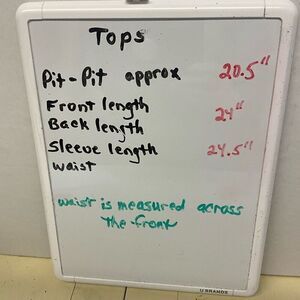 Tops
Pit-Pit approx 20.5"
Front length 24"
Back length
Sleeve length 24.5"
waist
waist is measured across
the front
U BRANDS